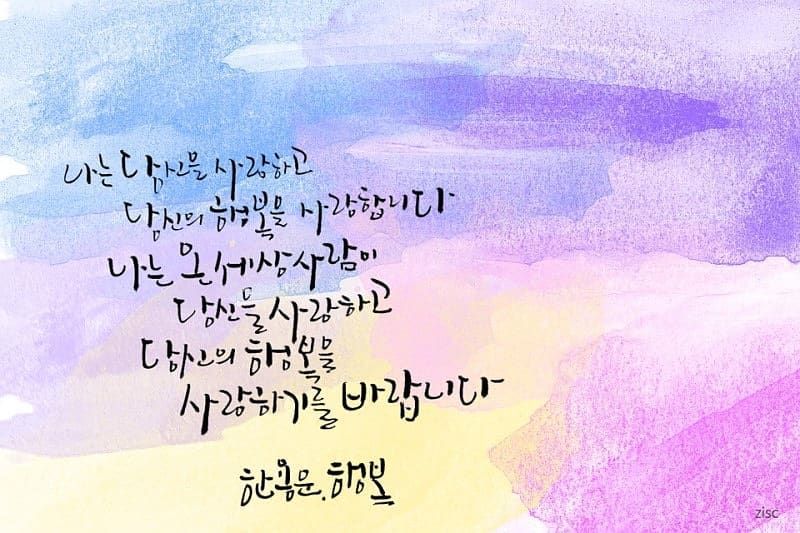 나는 당신을 사랑하고
당신의 행복을 사랑합니다
나는 온 세상 사람이
당신을 사랑하고
당신의 행복을
사랑하기를 바랍니다
한용운. 행복
zisc